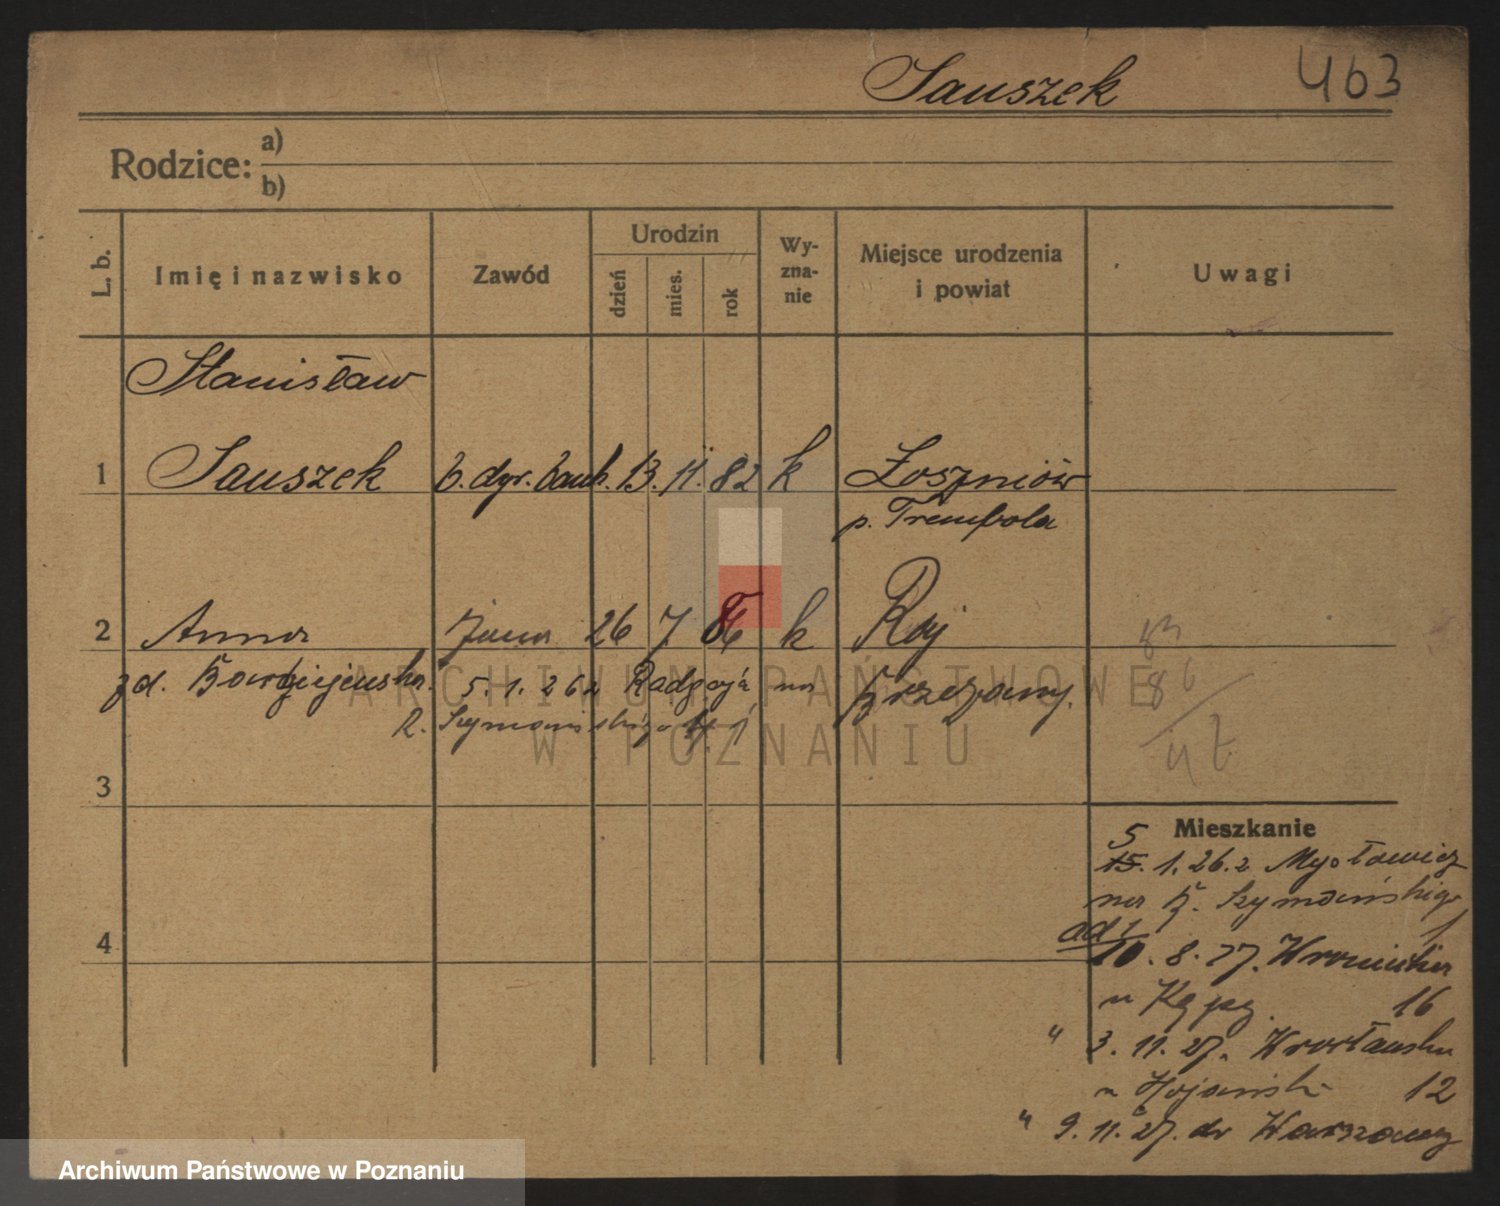 Sauszek 463
Rodzice: a)
b)
L. b. Imię i nazwisko Zawód Urodzin dzień mies. rok Wy-zna-nie Miejsce urodzenia i powiat Uwagi
Stanisław
1 Sauszek b. dyr. bank. 13. 11. 82 k Łoszniów
p. Trembola
2 Anna żona 26 7 86 k Raj
zd. 5. 1. 26 z Radzoja na Brzeżany.
Szymańskiego 1
83
86
47
ARCHIWUM PAŃSTWOWE
W POZNANIU
3
Mieszkanie
5
15. 1. 26. z Mysłowic
na Szymańskiego
1
4
ad 1
10. 8. 27. Wroniecka
u 16
" 3. 11. 27. Wrocławska
u 12
" 9. 11. 27. do Warszawy
Archiwum Państwowe w Poznaniu